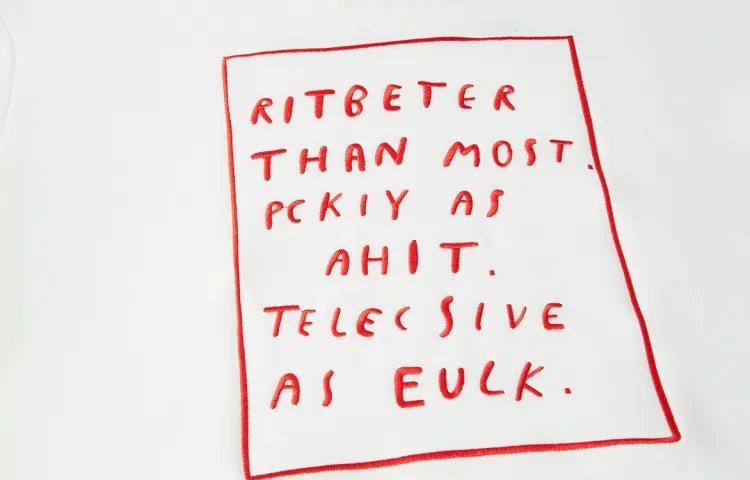 RITBETER
THAN MOST.
PCKIY AS
AHIT.
TELECSIVE
AS EULK.